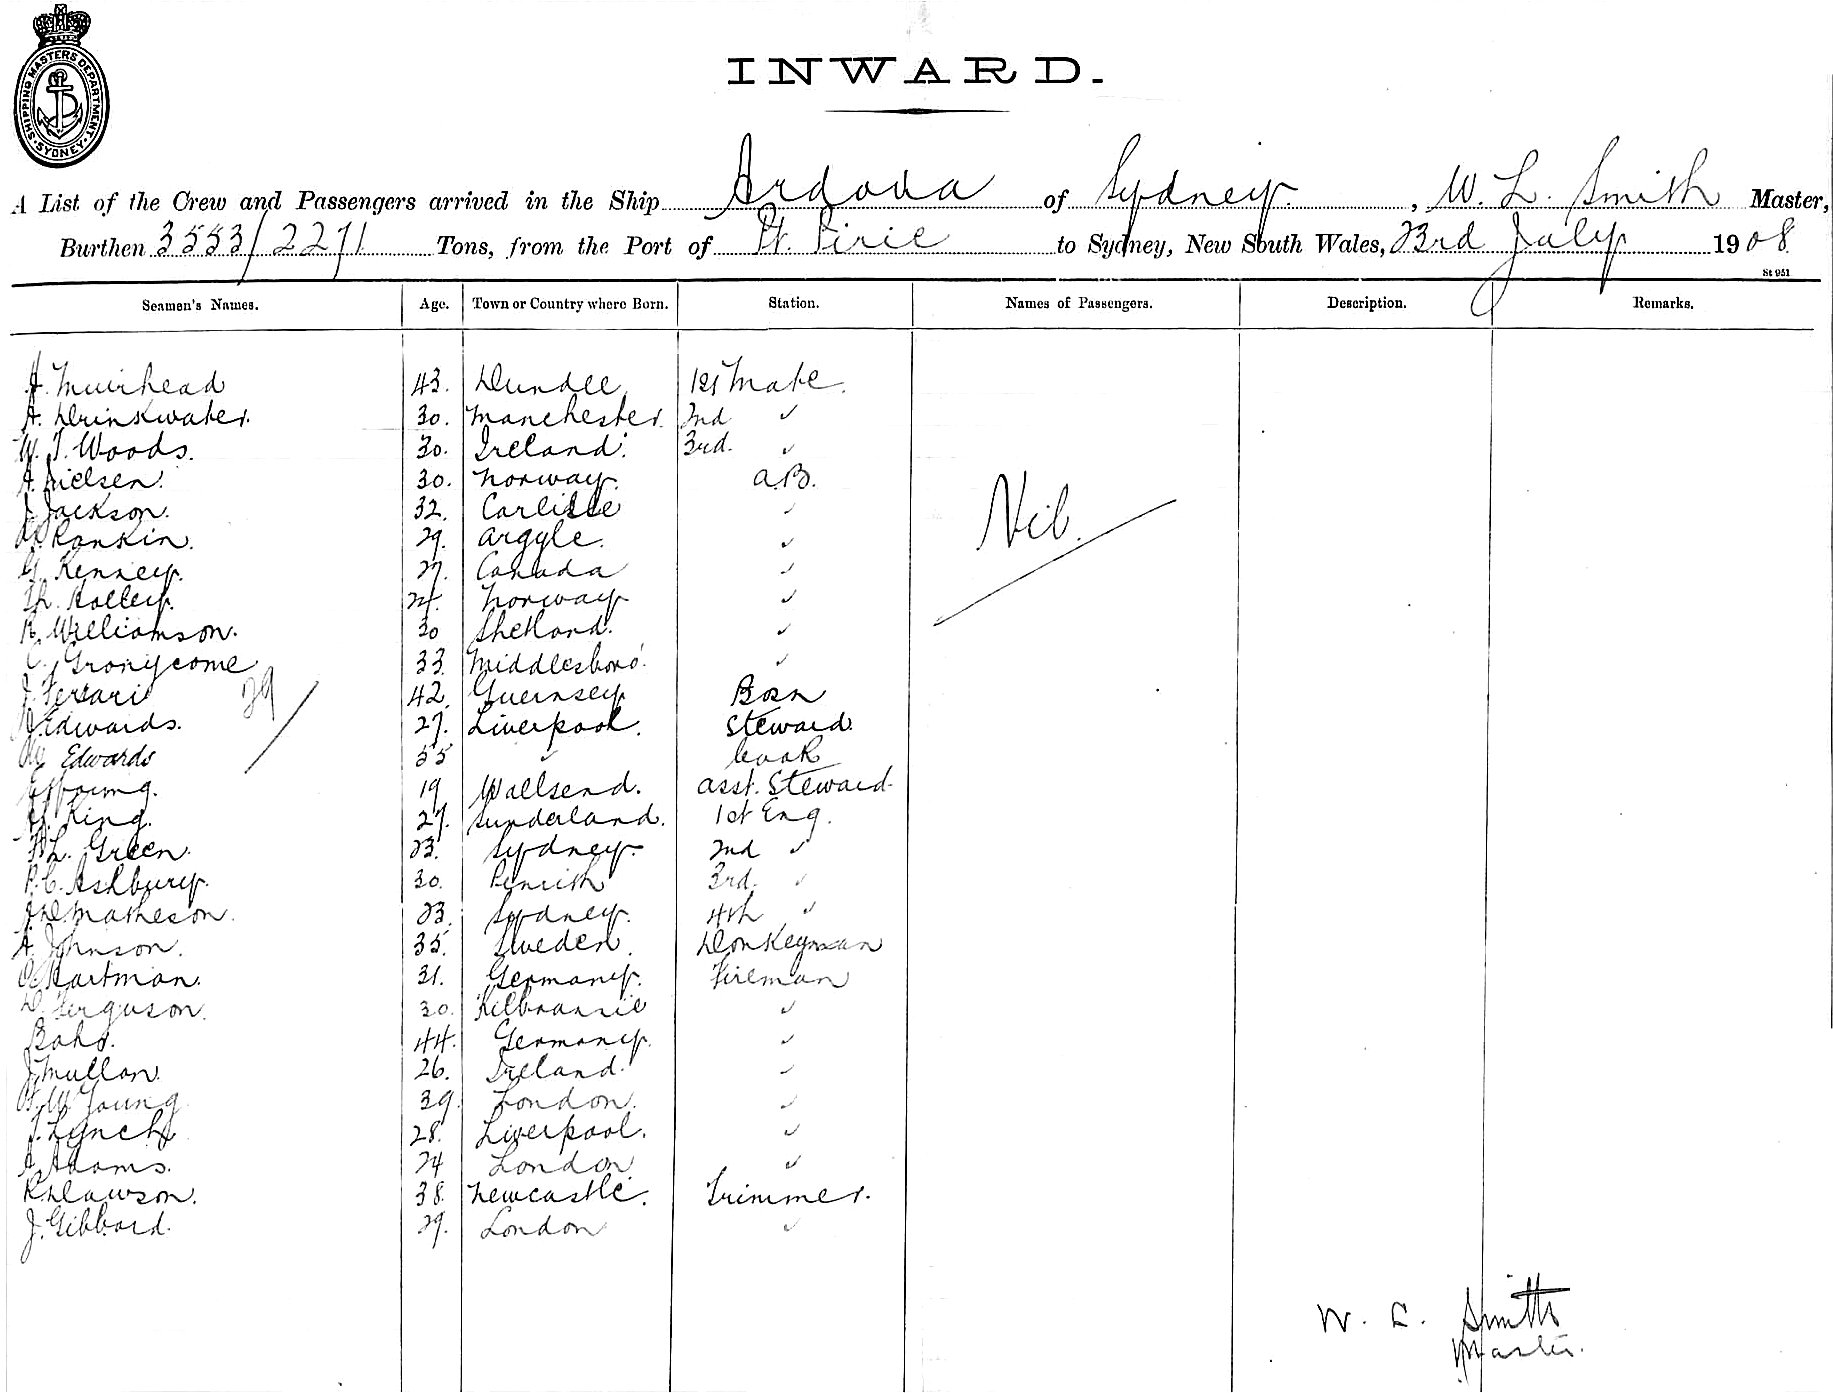 SHIPPING MASTERS DEPARTMENT · SYDNEY ·
INWARD.
A List of the Crew and Passengers arrived in the Ship Ardova of Sydney, W. L. Smith Master,
Burthen 3553/2271 Tons, from the Port of Pt. Pirie to Sydney, New South Wales, 23rd July 1908
St 951
Seamen's Names. Age. Town or Country where Born. Station. Names of Passengers. Description. Remarks.
Muirhead 43. Dundee 1st Mate.
A. Drinkwater. 30. Manchester. 2nd ✓
W. J. Woods. 30. Ireland. 3rd. ✓
A. Nielsen. 30. Norway. A.B.
J. Jackson. 32. Carlisle ✓
Rankin. 29. Argyle. ✓
G. Kenney. 27. Canada ✓
Norway ✓
R. Williamson. 30 Shetland. ✓
C. Gronycome 33. Middlesboro'. ✓
J. Ferrari 42. Guernsey Bosn
Edwards. 27. Liverpool. Steward.
Edwards 55 ✓ Cook
Young. 19 Wallsend. Asst. Steward.
King. 27. Sunderland. 1st Eng.
Green. 23. Sydney. 2nd ✓
P. C. Ashbury. 30. Penrith 3rd. ✓
Matheson. 23. Sydney. 4th ✓
A. Johnson. 35. Sweden. Donkeyman
Hartman. 31. Germany. Fireman
D. Ferguson. 30. ✓
44. Germany. ✓
J. Mullan. 26. Ireland. ✓
Young 39. London. ✓
J. Lynch 28. Liverpool. ✓
A. Adams. 24 London ✓
R. Dawson. 38. Newcastle. Trimmer.
J. Gibbard. 29. London ✓
Nil.
29/
W. L. Smith
Master.